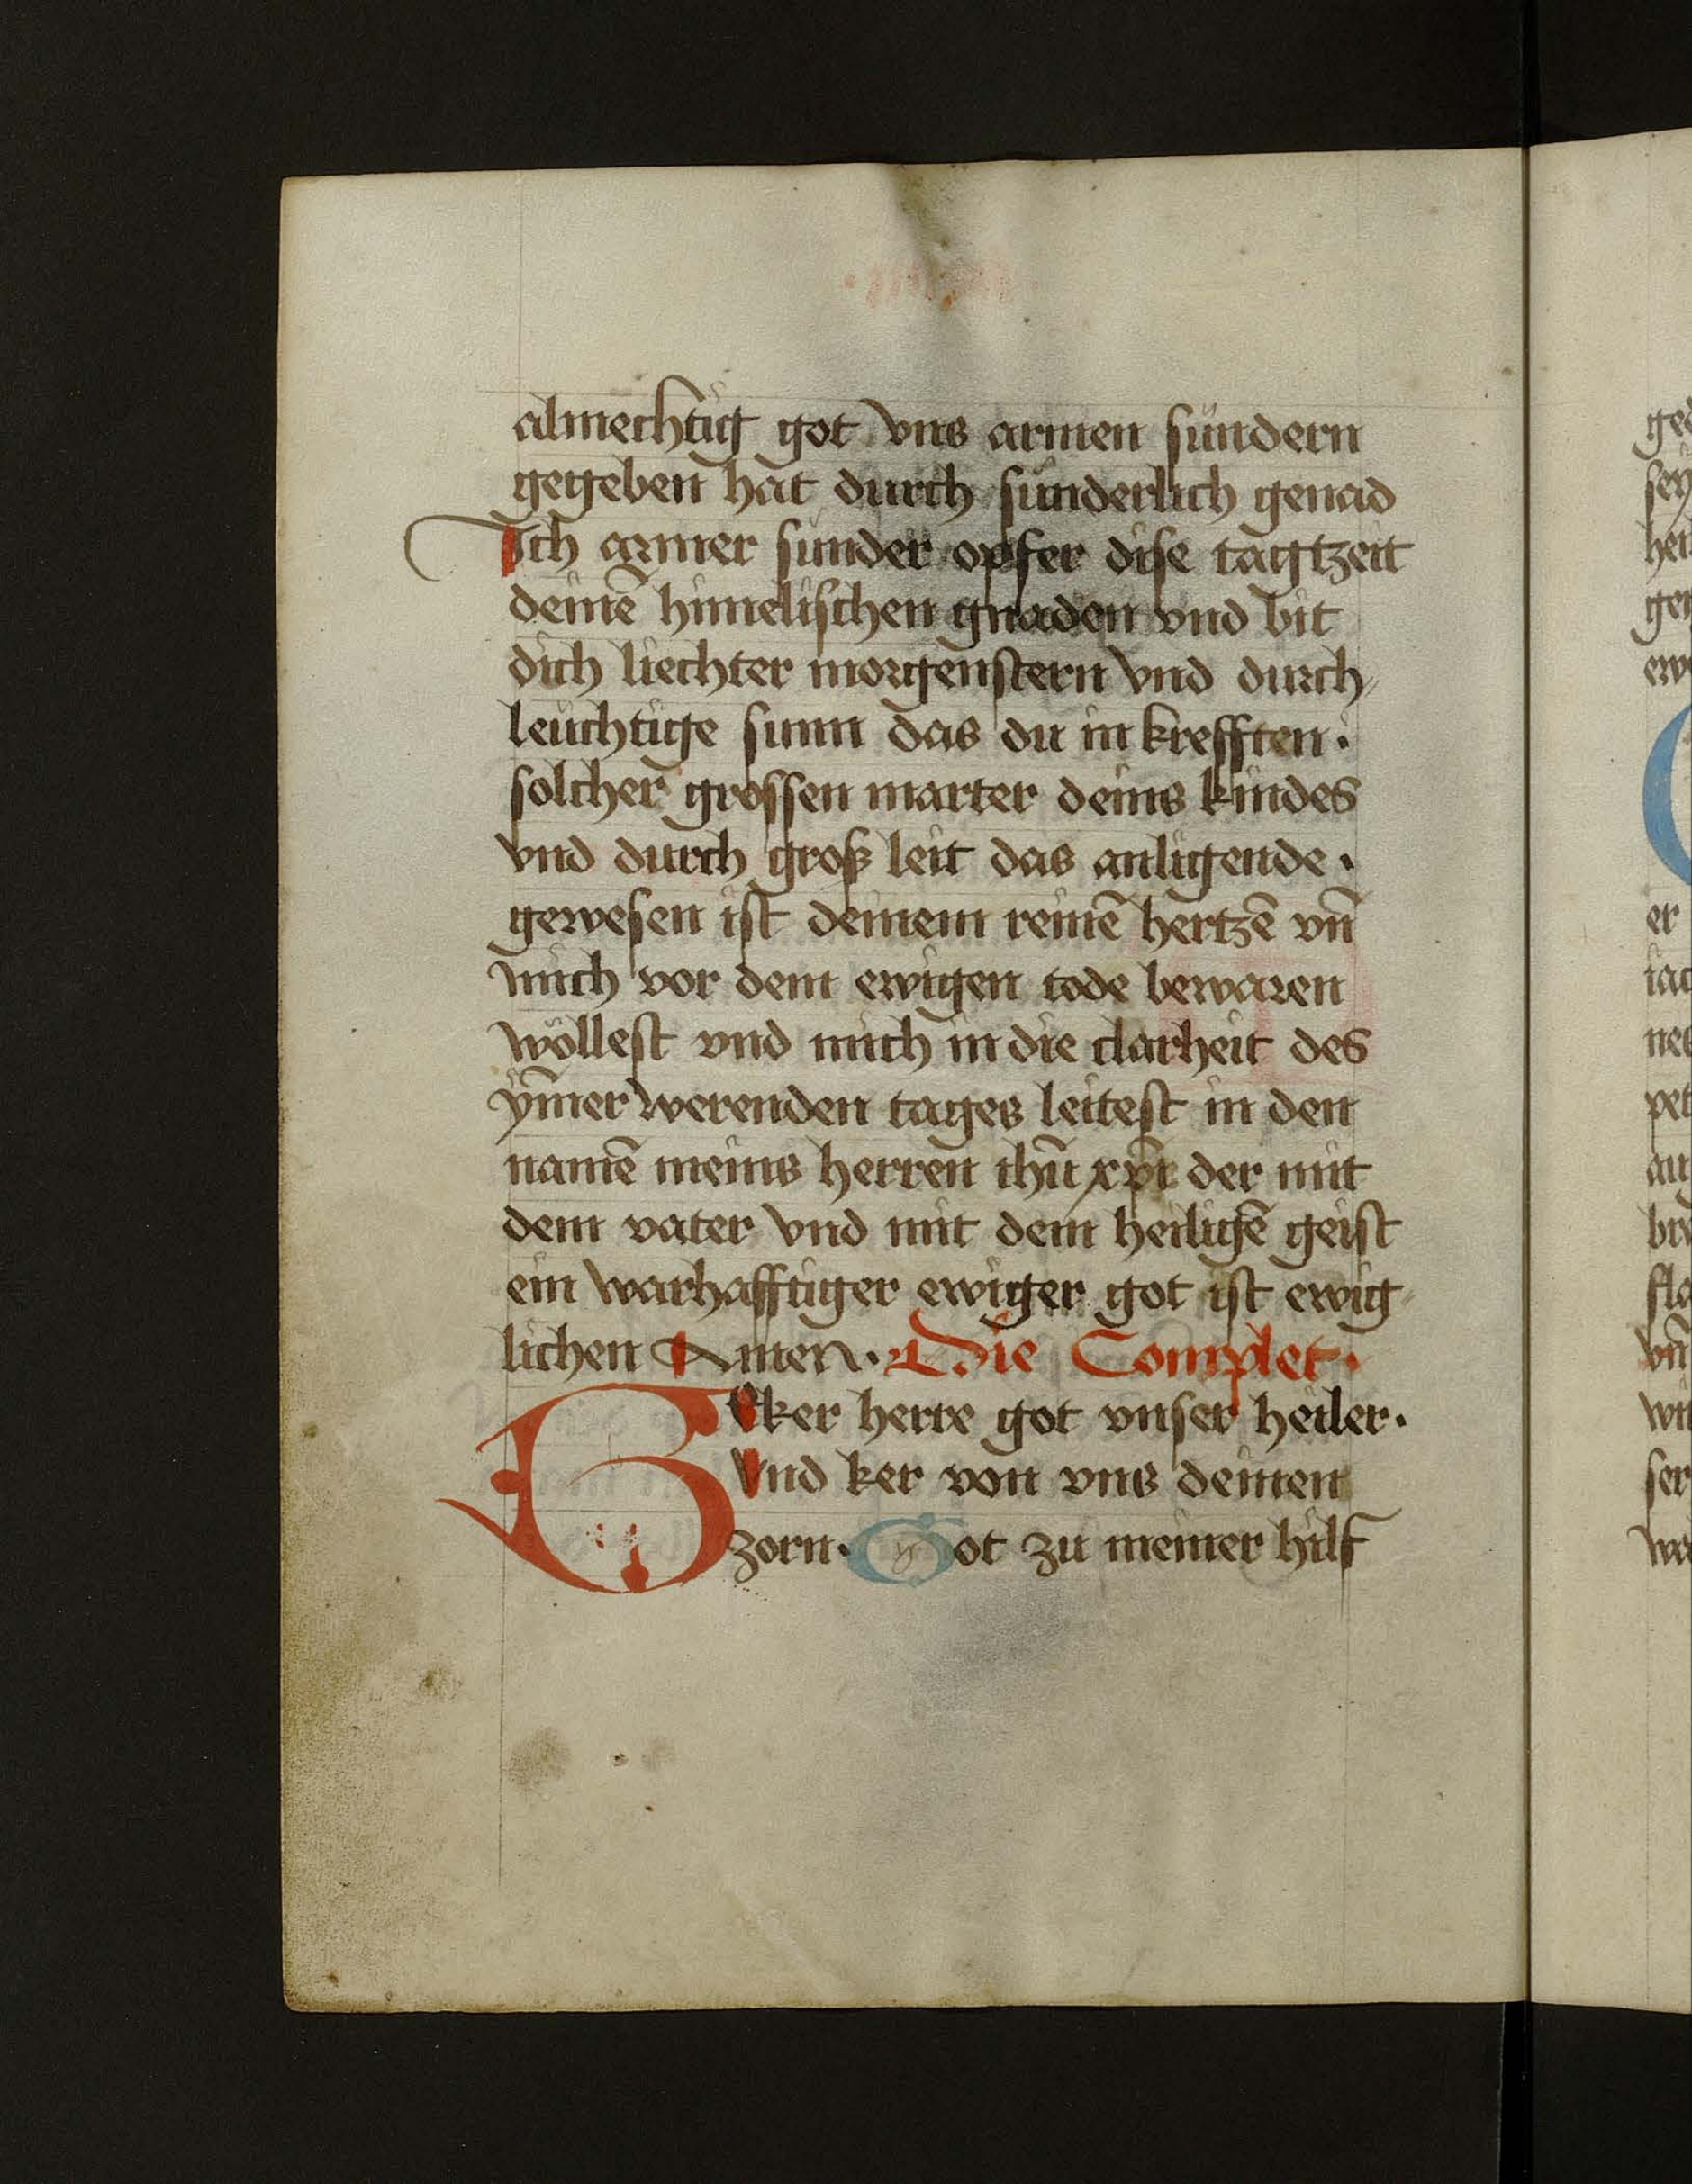 almechtig got vns armen sündern
gegeben hat durch sünderlich genad
Ich armer sünder opfer dise tagtzeit
deinē himelischen gnaden vnd bit
dich liechter morgenstern vnd durch
leuchtige sunn das du in krefften ·
solcher grossen marter deins kindes
vnd durch groß leit das anligende ·
gewesen ist deinem reinē hertzē vn̄
mich vor dem ewigen tode bewaren
wöllest vnd mich in die clarheit des
ym̄er werenden tages leitest in den
namē meins herren ihū xp̄i der mit
dem vater vnd mit dem heiligē geist
ein warhafftiger ewiger got ist ewig
lichen Amen · Die Complet ·
BEker herre got vnser heiler ·
Vnd ker von vns deinen
zorn · Got zu meiner hilf